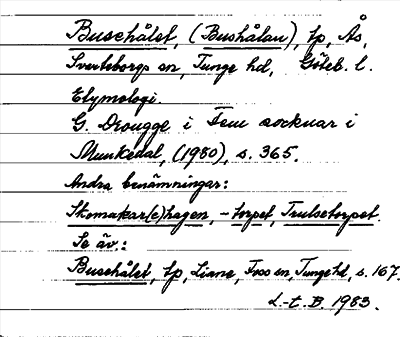 Buschålst, (Bushålan), tp, Ås,
Svarteborgs sn, Tunge hd, Göteb. l.
Etymologi.
G. Drougge i Fem socknar i
Munkedal, (1980), s. 365.
Andra benämningar:
Skomakar(e)hagen, -torpet, Trulsetorpet.
Se äv.:
Buschålet, tp, Liane, Foss sn, Tunge hd, s. 167.
L-t. B. 1983.